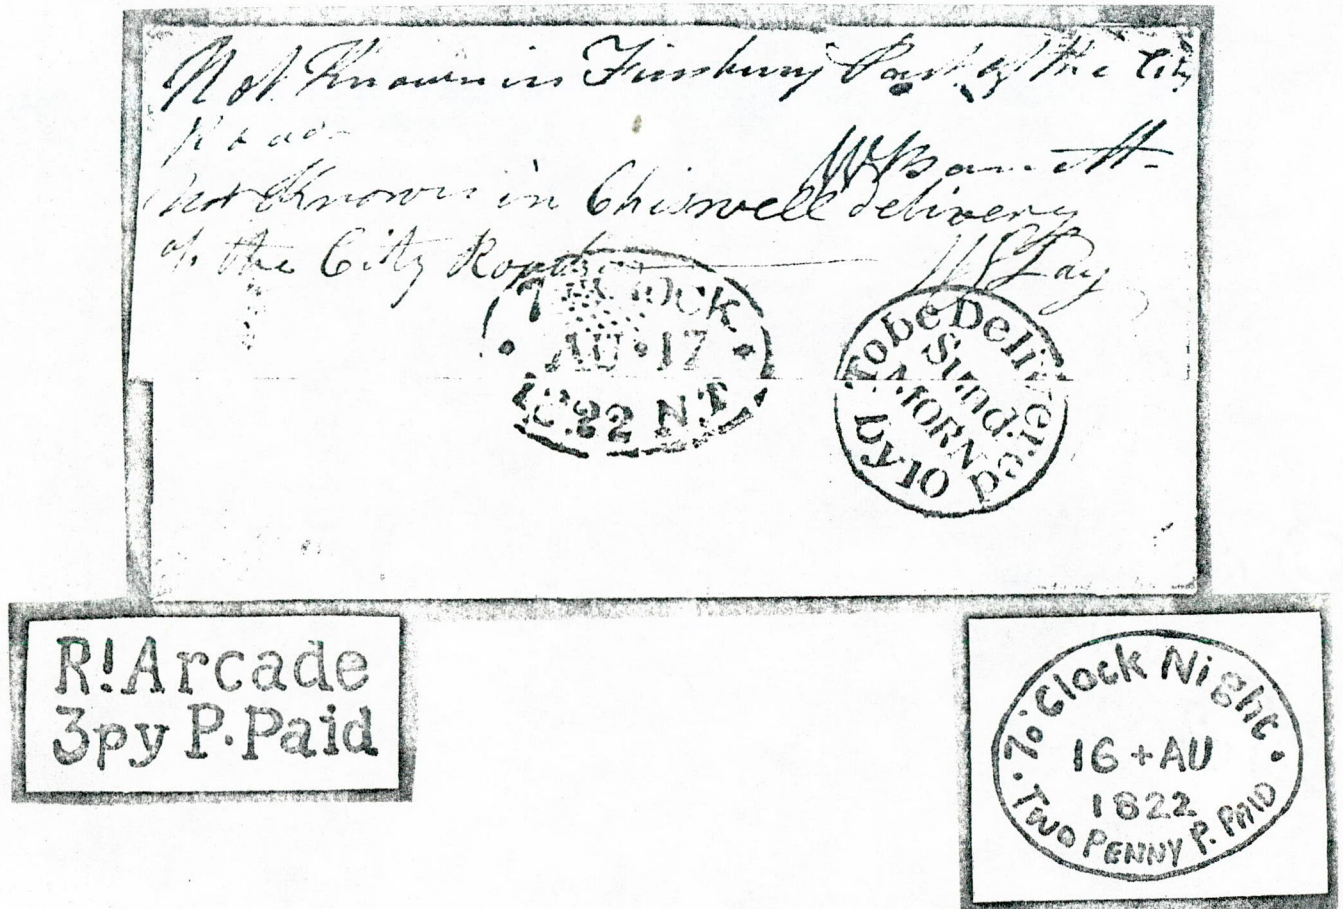 Not Known in Finsbury Part of the City
Road
W Barnett
Not Known in Chiswell delivery
of the City Road
Lay
7 o'Clock
AU • 17
1822 NT
To be Delivered
by 10
Sund:
MORN
R! Arcade
3py P. Paid
7 o'Clock Night
16 + AU
1822
Two PENNY P. PAID